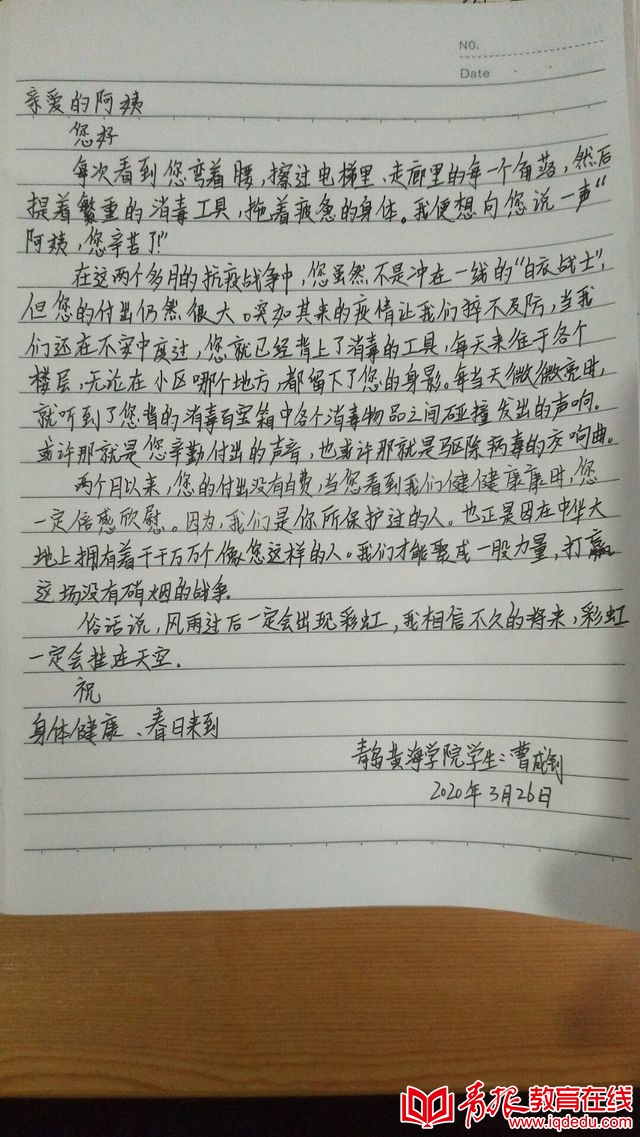 NO.
Date
亲爱的阿姨
您好
每次看到您弯着腰,擦过电梯里、走廊里的每一个角落,然后
提着繁重的消毒工具,拖着疲惫的身体。我便想向您说一声“
阿姨,您辛苦了!”
在这两个多月的抗疫战争中,您虽然不是冲在一线的“白衣战士”,
但您的付出仍然很大。突如其来的疫情让我们猝不及防,当我
们还在不安中度过,您就已经背上了消毒的工具,每天来往于各个
楼层,无论在小区哪个地方,都留下了您的身影。每当天微微亮时,
就听到了您背的消毒百宝箱中各个消毒物品之间碰撞发出的声响。
或许那就是您辛勤付出的声音,也或许那就是驱除病毒的交响曲。
两个月以来,您的付出没有白费,当您看到我们健健康康时,您
一定倍感欣慰。因为,我们是你所保护过的人。也正是因在中华大
地上拥有着千千万万个像您这样的人。我们才能聚成一股力量,打赢
这场没有硝烟的战争。
俗话说,风雨过后一定会出现彩虹,我相信不久的将来,彩虹
一定会挂在天空.
祝
身体健康、春日来到
青岛黄海学院学生:曹成钊
2020年3月26日
青报教育在线
www.iqdedu.com